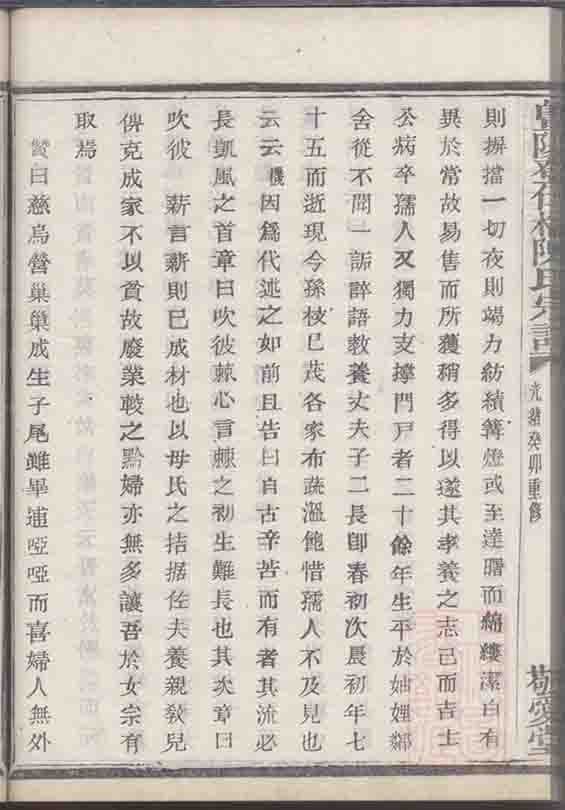 則摒擋一切夜則竭力紡績篝燈或至達曙而綿縷潔白有
異於常故易售而所獲稍多得以遂其孝養之志已而吉士
公病卒孺人又獨力支撐門戸者二十餘年生平於妯娌鄰
舍從不聞一詬誶語教養丈夫子二長卽春初次晨初年七
十五而逝現今孫枝已茂各家布蔬溫飽惜孺人不及見也
云云機因爲代述之如前且告曰自古辛苦而有者其流必
長凱風之首章曰吹彼棘心言棘之初生難長也其次章曰
吹彼 薪言薪則已成材也以母氏之拮据佐夫養親敎兒
俾克成家不以貧故廢業較之黔婦亦無多讓吾於女宗有
取焉
贊曰慈烏營巢巢成生子尾雖畢逋啞啞而喜婦人無外
陳氏宗譜
光緖癸卯重修
敬愛堂